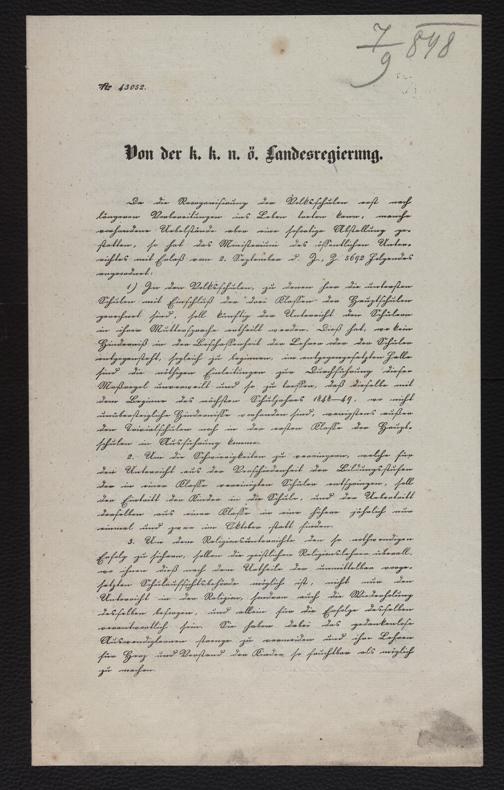 7/9 848
Nr 43052.
Von der k. k. n. ö. Landesregierung.
Da die Reorganisirung der Volksschulen erst nach
längeren Vorbereitungen ins Leben treten kann, manche
vorhandene Uebelstände aber eine sofortige Abstellung ge-
statten, so hat das Ministerium des öffentlichen Unter-
richtes mit Erlaß vom 2. September d. J., Z. 5692 Folgendes
angeordnet:
1) In den Volksschulen, zu denen hier die untersten
Schulen mit Einschluß der drei Klassen der Hauptschulen
gerechnet sind, soll künftig der Unterricht den Schülern
in ihrer Muttersprache ertheilt werden. Dieß hat, wo kein
Hinderniß in der Beschaffenheit der Lehrer oder der Schüler
entgegensteht, sogleich zu beginnen, im entgegengesetzten Falle
sind die nöthigen Einleitungen zur Durchführung dieser
Maßregel unverweilt und so zu treffen, daß dieselbe mit
dem Beginne des nächsten Schuljahres 1848–49, wo nicht
unübersteigliche Hindernisse vorhanden sind, wenigstens außer
den Trivialschulen noch in der ersten Klasse der Haupt-
schulen in Ausführung komme.
2. Um die Schwierigkeiten zu verringern, welche für
den Unterricht aus der Verschiedenheit der Bildungsstufen
der in einer Klasse vereinigten Schüler entspringen, soll
der Eintritt der Kinder in die Schule, und der Uebertritt
derselben aus einer Klasse in eine höhere jährlich nur
einmal und zwar im Oktober statt finden.
3. Um dem Religionsunterrichte den so nothwendigen
Erfolg zu sichern, sollen die geistlichen Religionslehrer überall,
wo ihnen dieß nach dem Urtheile der unmittelbar vorge-
setzten Schulaufsichtsbehörde möglich ist, nicht nur den
Unterricht in der Religion, sondern auch die Wiederholung
desselben besorgen, und allein für die Erfolge desselben
verantwortlich sein. Sie haben dabei das gedankenlose
Auswendiglernen strenge zu vermeiden und ihre Lehren
für Herz und Verstand der Kinder so fruchtbar als möglich
zu machen.